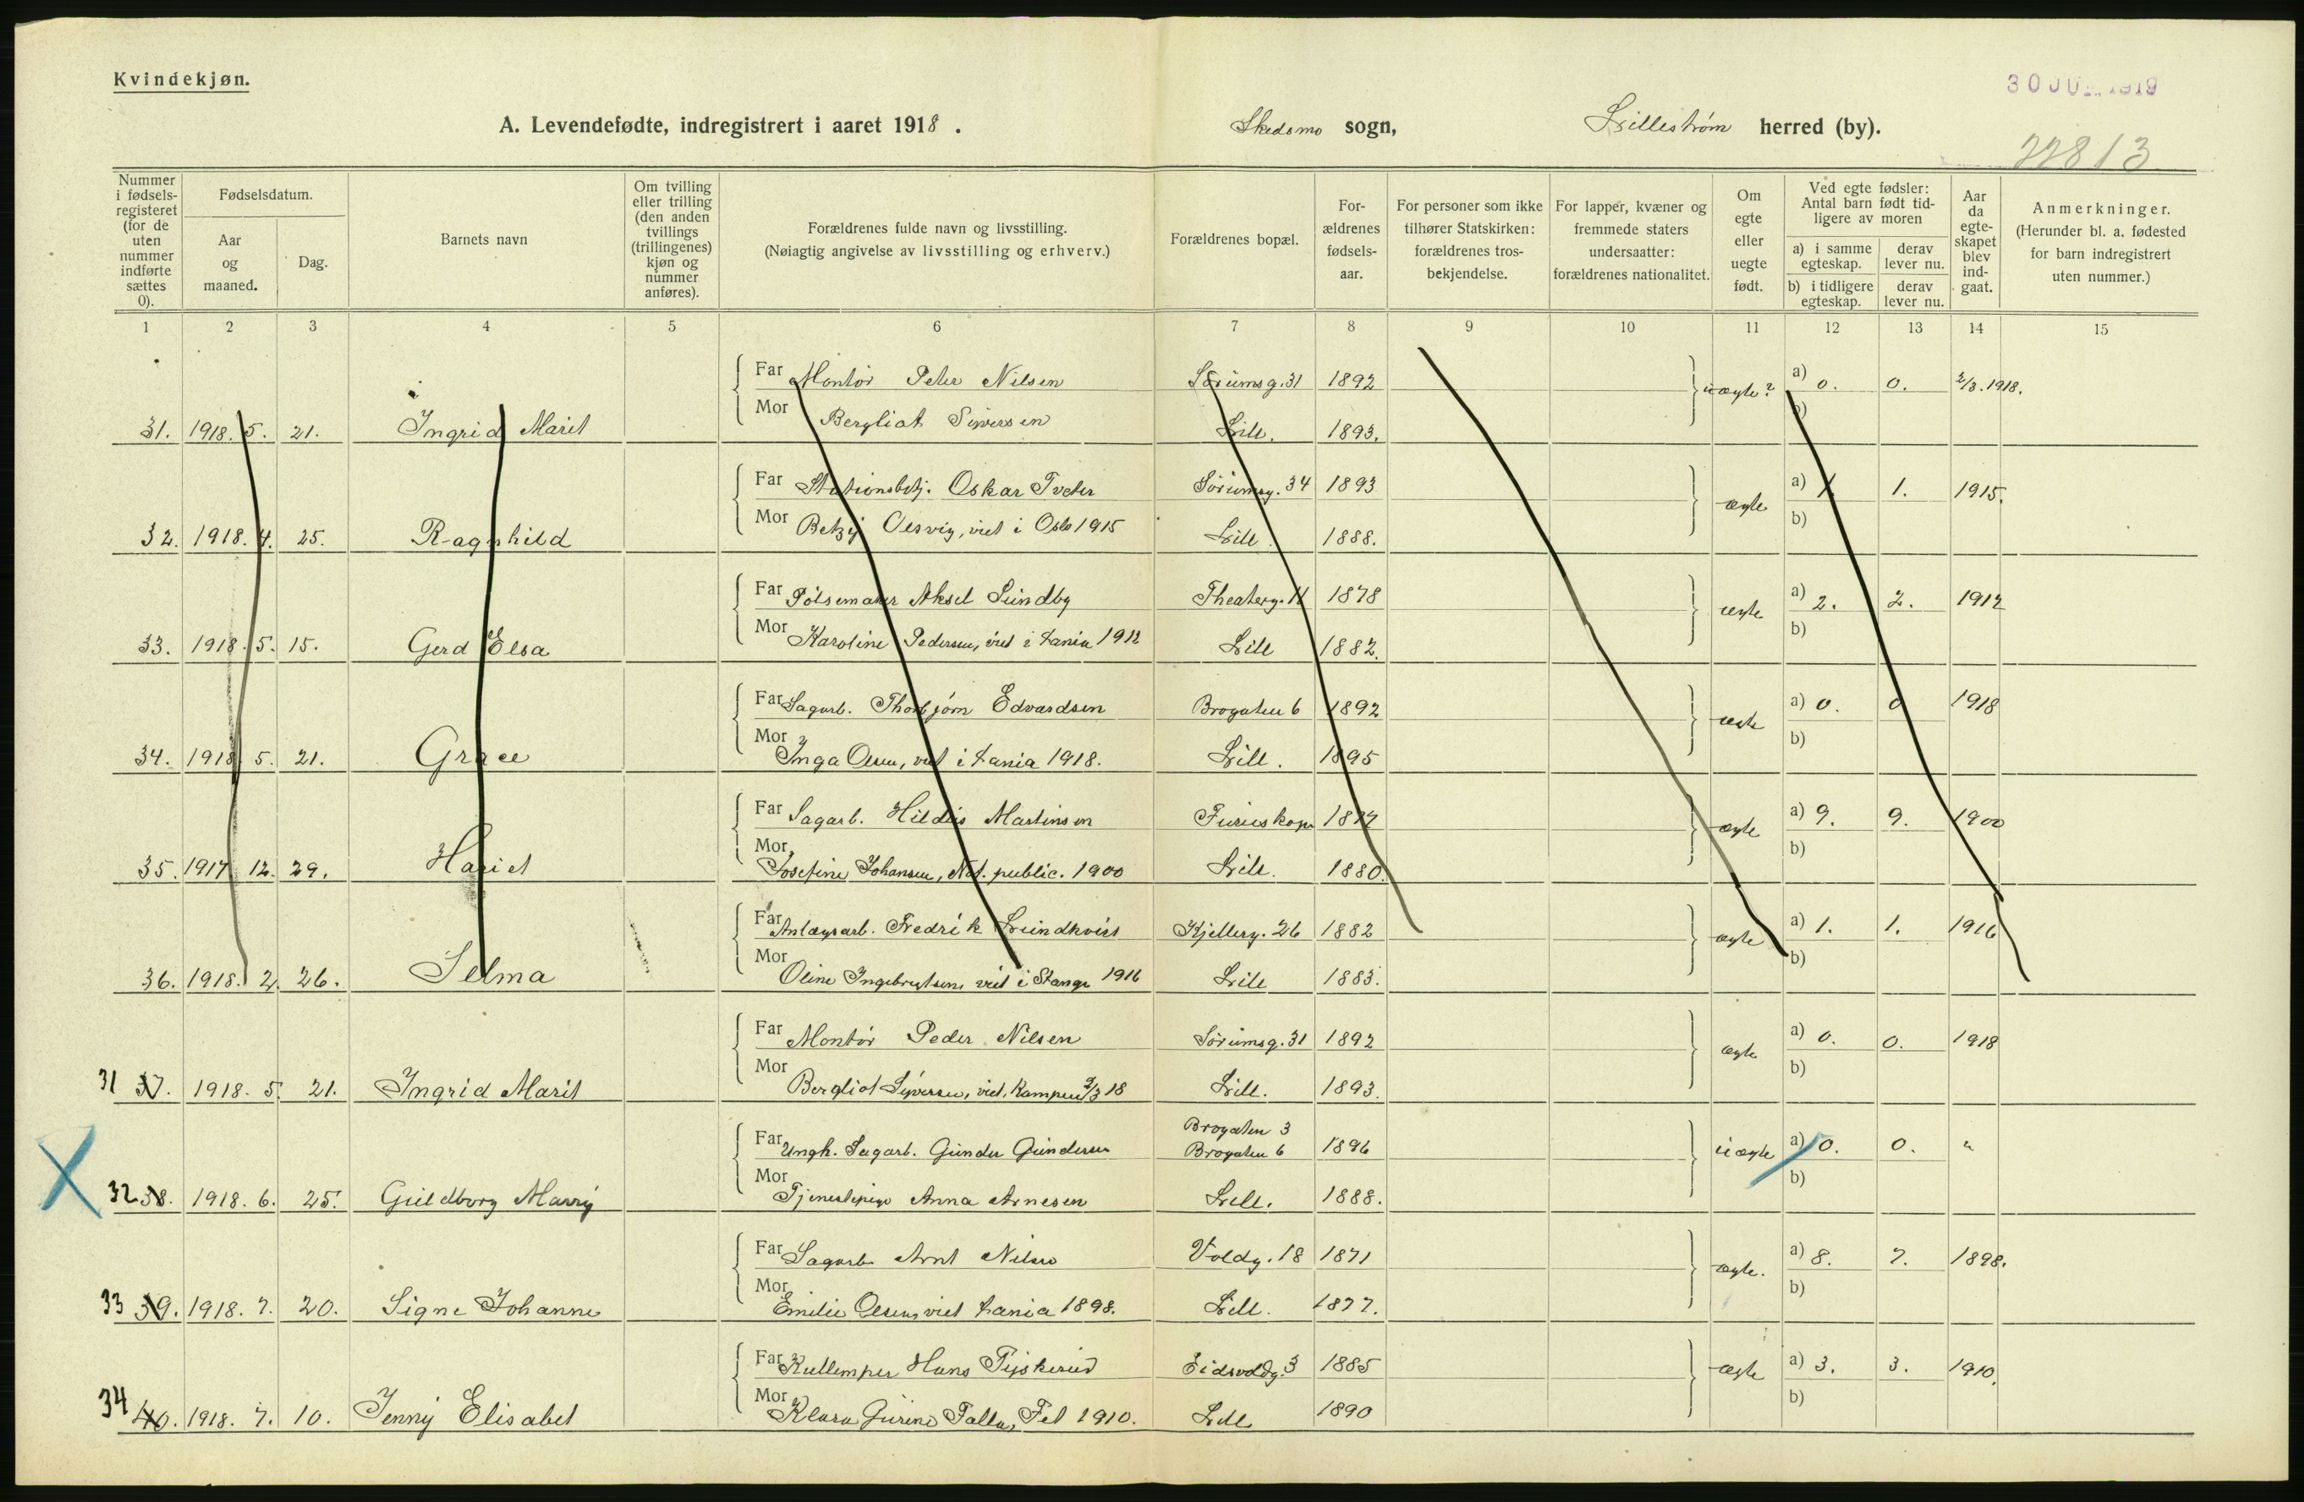 Kvindekjøn.
30 JUL 1919
A. Levendefødte, indregistrert i aaret 1918. Skedsmo sogn, Lillestrøm herred (by).
22813
Nummer i fødselsregisteret (for de uten nummer indførte sættes 0).
Fødselsdatum.
Aar og maaned.
Dag.
Barnets navn
Om tvilling eller trilling (den anden tvillings (trillingenes) kjøn og nummer anføres).
Forældrenes fulde navn og livsstilling.
(Nøiagtig angivelse av livsstilling og erhverv.)
Forældrenes bopæl.
Forældrenes fødselsaar.
For personer som ikke tilhører Statskirken: forældrenes trosbekjendelse.
For lapper, kvæner og fremmede staters undersaatter: forældrenes nationalitet.
Om egte eller uegte født.
Ved egte fødsler: Antal barn født tidligere av moren
a) i samme egteskap.
derav lever nu.
b) i tidligere egteskap.
derav lever nu.
Aar da egteskapet blev indgaat.
Anmerkninger.
(Herunder bl. a. fødested for barn indregistrert uten nummer.)
1 2 3 4 5 6 7 8 9 10 11 12 13 14 15
Far Montør Peter Nilsen Sørumsg. 31 1892 uægte? a) 0. 0. 2/3. 1918.
31. 1918. 5. 21. Ingrid Marit Mor Bergliot Siversen Lill. 1893. b)
Far Stationsbetj. Oskar Tveter Sørumsg. 34 1893 ægte a) 1. 1. 1915.
32. 1918. 4. 25. Ragnhild Mor Betzy Olsvig, viet i Oslo 1915 Lill. 1888. b)
Far Pølsemaker Aksel Lundby Theaterg. 11 1878 ægte a) 2. 2. 1912
33. 1918. 5. 15. Gerd Elsa Mor Karoline Pedersen, viet i Kania 1912 Lill 1882. b)
Far Sagarb. Thorbjørn Edvardsen Brogaten 6 1892 ægte a) 0. 0 1918
34. 1918 5. 21. Grace Mor Inga Olsen, viet i Kania 1918. Lill. 1895 b)
Far Sagarb. Martinsen 1877 ægte a) 9. 9. 1900
35. 1917 12. 29. Hariet Mor Josefine Johansen, Not. public. 1900 Lill. 1880. b)
Far Anlægsarb. Fredrik Lundkvist Kjellerg. 26 1882 ægte a) 1. 1. 1916
36. 1918. 2. 26. Selma Mor Oline Ingebregtsen, viet i Stange 1916 Lill 1883. b)
Far Montør Peder Nilsen Sørumsg. 31 1892 ægte a) 0. 0. 1918
31 37. 1918. 5. 21. Ingrid Marit Mor Bergliot Siversen, viet. Kampen 2/3 18 Lill. 1893. b)
Brogaten 3
Far Ungk. Sagarb. Gunder Gundersen Brogaten 6 1896 uægte a) 0. 0. "
32 38. 1918. 6. 25. Guldborg Marry Mor Tjenestepige Anna Arnesen Lill. 1888. b)
Far Sagarb. Arnt Nilsen Voldg. 18 1871 ægte. a) 8. 7. 1898.
33 39. 1918. 7. 20. Signe Johanne Mor Emilie Olsen, viet Kania 1898. Lill. 1877. b)
Far Kullemper Hans Tyskerud Eidsvoldg. 3 1885 ægte a) 3. 3. 1910.
34 40. 1918. 7. 10. Jenny Elisabet Mor Klara Gurine Falla, Fet 1910. Lill 1890 b)